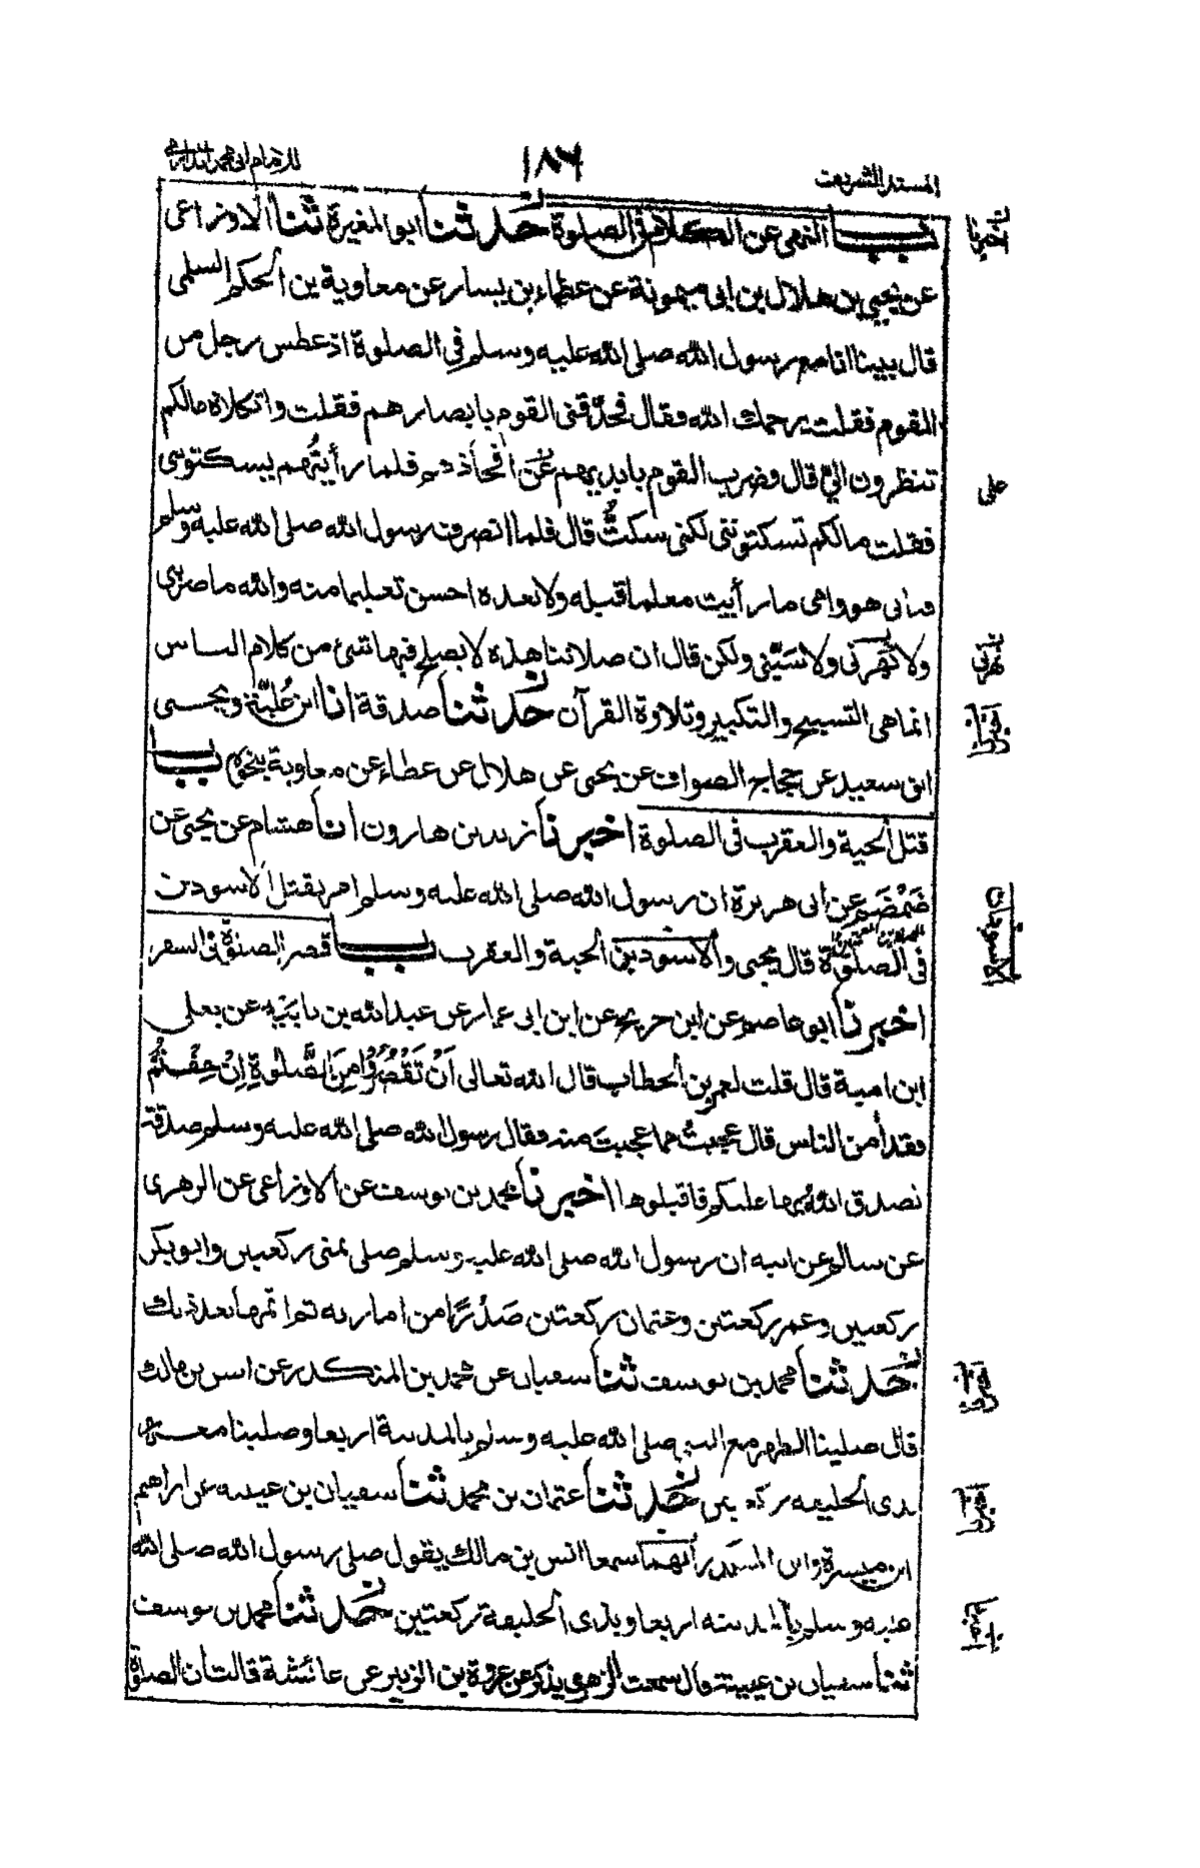 المسند الشريف
١٨٦
للامام ابی محمد الدارمی
باب النهی عن الكلام فی الصلوة حدثنا ابو المغیرة ثنا الاوزاعی
اخبرنا
عن یحیی بن هلال بن ابی میمونة عن عطاء بن یسار عن معاویة بن الحكم السلمی
قال بینا انا مع رسول الله صلی الله علیه وسلم فی الصلوة اذ عطس رجل من
القوم فقلت یرحمك الله وقال فحدّقنی القوم بابصارهم فقلت واثكلاه مالكم
تنظرون الیّ قال وضرب القوم بایدیهم عن افخاذهم فلما رأیتُهم یسكتونی
علی
فقلت مالكم تسكتوننی لكنی سكتُّ قال فلما انصرف رسول الله صلی الله علیه وسلم
فبابی هو وامی ما رأیت معلما قبله ولا بعده احسن تعلیما منه والله ما ضربنی
ولا كهرنی ولا سَبَّنی ولكن قال ان صلاتنا هذه لا یصلح فیها شیء من كلام الناس
كهرنی
انما هی التسبیح والتكبیر وتلاوة القرآن حدثنا صدقة انا ابن عُلیّة ویحیی
اخبرنا
ابن سعید عن حجاج الصواف عن یحیی عن هلال عن عطاء عن معاویة بنحوه باب
قتل الحیة والعقرب فی الصلوة اخبرنا یزید بن هارون انا هشام عن یحیی عن
ضَمْضَمٍ عن ابی هریرة ان رسول الله صلی الله علیه وسلم امر بقتل الاسودین
الاسودان
فی الصلوة قال یحیی والاسودین الحیة والعقرب باب قصر الصلوة فی السفر
اخبرنا ابو عاصم عن ابن جریج عن ابن ابی عمار عن عبدالله بن بابَیْه عن یعلی
ابن امیة قال قلت لعمر بن الخطاب قال الله تعالی اَنْ تَقْصُرُوْا مِنَ الصَّلٰوةِ اِنْ خِفْتُمْ
فقد أمن الناس قال عجبتُ مما عجبتَ منه فقال رسول الله صلی الله علیه وسلم صدقة
تصدق اللهُ بها علیكم فاقبلوها اخبرنا محمد بن یوسف عن الاوزاعی عن الزهری
عن سالم عن ابیه ان رسول الله صلی الله علیه وسلم صلی بمنی ركعتین وابوبكر
ركعتین وعمر ركعتین وعثمان ركعتین صَدْرًا من امارته ثم اتمها بعد ذلك
حدثنا محمد بن یوسف ثنا سفیان عن محمد بن المنكدر عن انس بن مالك
اخبرنا
قال صلینا الظهر مع النبی صلی الله علیه وسلم بالمدینة اربعا وصلینا معه
بذی الحلیفه ركعتین حدثنا عثمان بن محمد ثنا سفیان بن عیینه عن ابراهیم
اخبرنا
ابن میسرة وابن المنكدر أنهما سمعا انس بن مالك یقول صلی رسول الله صلی الله
علیه وسلم بالمدینه اربعا وبذی الحلیفة ركعتین حدثنا محمد بن یوسف
اخبرنا
ثنا سفیان بن عیینة قال سمعت الزهری یذكر عن عروة بن الزبیر عن عائشة قالت ان الصلوة